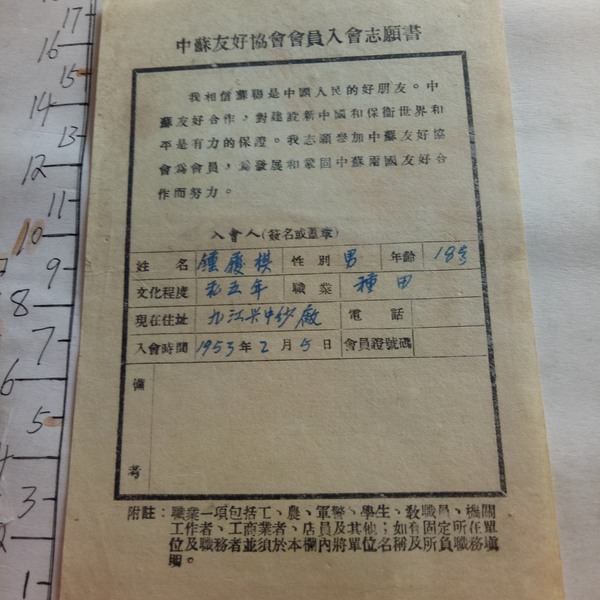 中蘇友好協會會員入會志願書
我相信蘇聯是中國人民的好朋友。中
蘇友好合作，對建設新中國和保衛世界和
平是有力的保證。我志願參加中蘇友好協
會爲會員，爲發展和鞏固中蘇兩國友好合
作而努力。
入會人(簽名或蓋章)
姓名 鍾 棋 性別 男 年齡 18
文化程度 五年 職業 種田
現在住址 九江興中紗廠 電話
入會時間 1953年2月5日 會員證號碼
備
考
附註：職業一項包括工、農、軍警、學生、教職員、機關
工作者、工商業者、店員及其他；如有固定所在單
位及職務者並須於本欄內將單位名稱及所負職務塡
明。
17
16
15
14
13
12
11
10
9
8
7
6
5
4
3
2
1